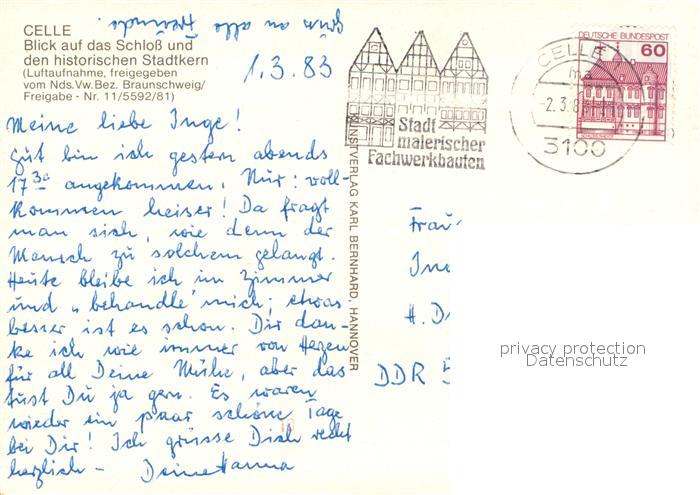 Grüss an alle Freunde.
CELLE
Blick auf das Schloß und
den historischen Stadtkern
(Luftaufnahme, freigegeben
vom Nds.Vw.Bez. Braunschweig/
Freigabe - Nr. 11/5592/81)
1.3.83
Meine liebe Inge!
Gut bin ich gestern abends
17 30 angekommen. Nur: voll-
kommen heiser! Da fragt
man sich, wie denn der
Mensch zu solchem gelangt.
Heute bleibe ich im Zimmer
und „behandle" mich; etwas
besser ist es schon. Dir dan-
ke ich wie immer von Herzen
für all Deine Mühe, aber das
tust Du ja gern. Es waren
wieder ein paar schöne Tage
bei Dir! Ich grüsse Dich recht
herzlich - Deine Hanna
KUNSTVERLAG KARL BERNHARD, HANNOVER
Stadt
malerischer
Fachwerkbauten
CELLE
ma
-2.3.8
3100
DEUTSCHE BUNDESPOST
60
Frau
In
H. D
DDR 5
privacy protection
Datenschutz